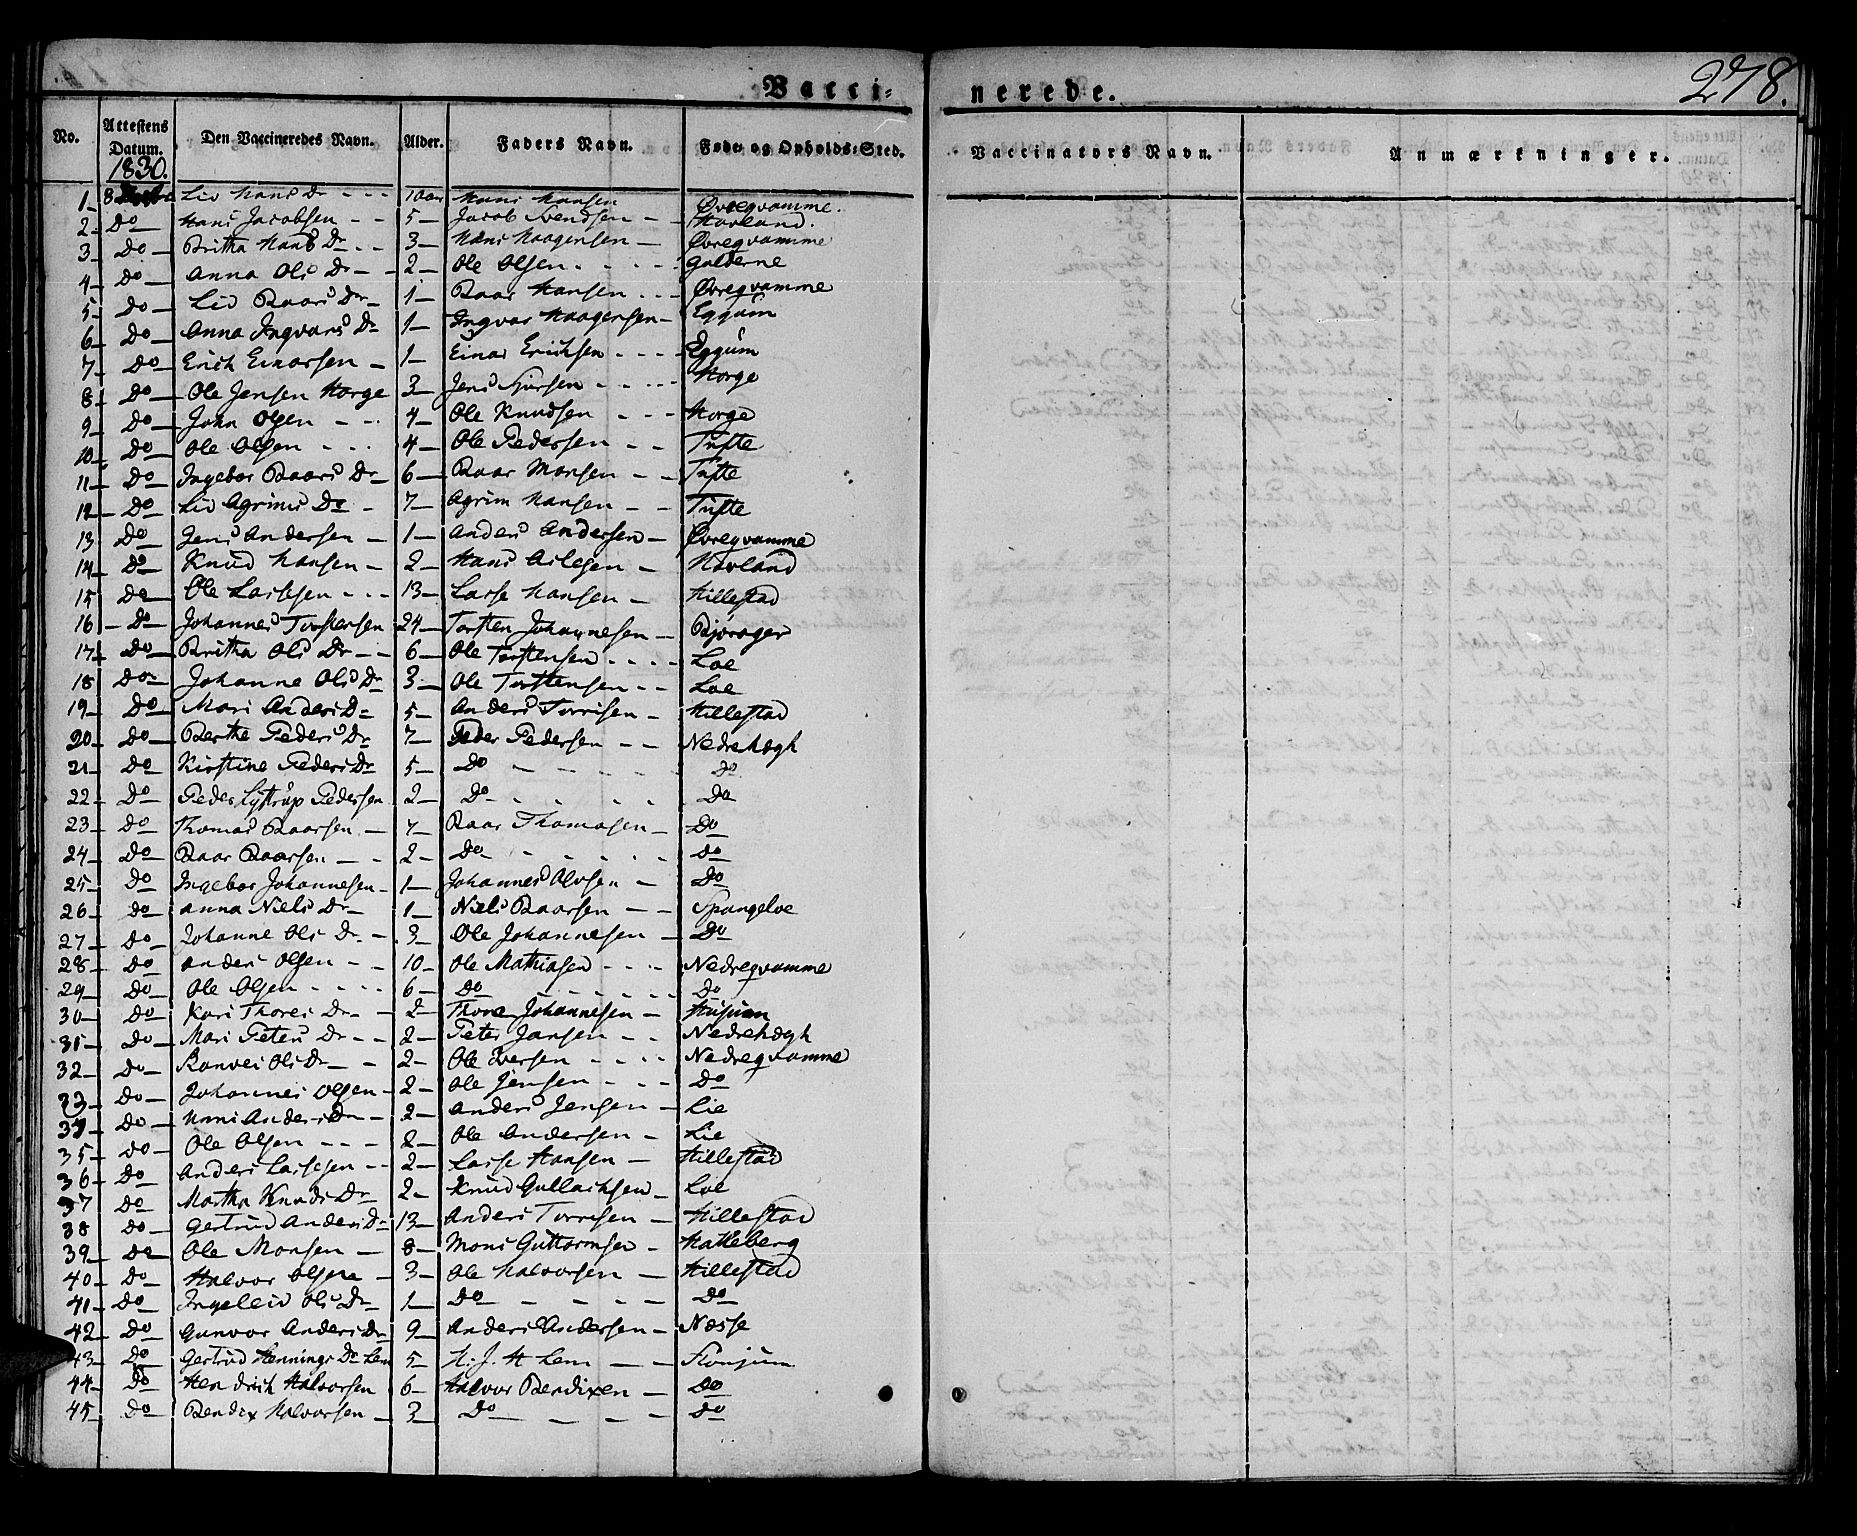 Vacci- nerede. 278.
No. Attestens Datum. Den Vaccineredes Navn. Alder. Faders Navn. Føde og Opholds-Sted. Vaccinators Navn. Anmærkninger.
1830.
1 8 Liv Hans Dr 10 aar Hans Hansen Øvreqvamme.
2 Do Hans Jacobsen 5 Jacob Svendsen Hovland.
3 Do Britha Hans Dr 3 Hans Haagensen Øvreqvamme
4 Do Anna Ols Dr 2 Ole Olsen Galderne
5 Do Liv Baars Dr 1 Baar Hansen Øvreqvamme
6 Do Anna Ingvars Dr 1 Ingvar Haagensen Eggum
7 Do Erich Einarsen 1 Einar Erichsen Eggum
8 Do Ole Jensen Horge 3 Jens Horge
9 Do John Olsen 4 Ole Knudsen Horge
10 Do Ole Olsen 4 Ole Pedersen Tufte
11 Do Ingebor Baars Dr 6 Baar Monsen Tufte
12 Do Liv Agrims Dr 7 Agrim Hansen Tufte
13 Do Jens Andersen 1 Anders Andersen Øvreqvamme
14 Do Knud Hansen 2 Hans Hovland
15 Do Ole Lassesen 13 Lasse Hansen Hillestad
16 Do Johannes Torstensen 24 Torsten Johannesen
17 Do Britha Ols Dr 6 Ole Torstensen Loe
18 Do Johanne Ols Dr 3 Ole Torstensen Loe
19 Do Mari Anders Dr 5 Anders Torrisen Hillestad
20 Do Berthe Peders Dr 7 Peder Pedersen Nedrehægh
21 Do Kirstine Peders Dr 5 Do Do
22 Do Peder Lystrup Pedersen 2 Do Do
23 Do Thomas Baarsen 7 Baar Thomasen Do
24 Do Baar Baarsen 2 Do Do
25 Do Ingebor Johannesen 1 Johannes Olvsen Do
26 Do Anna Niels Dr 1 Niels Baarsen Spangeloe
27 Do Johanne Ols Dr 3 Ole Johannesen Do
28 Do Anders Olsen 10 Ole Mathiasen Nedreqvamme
29 Do Ole Olsen 6 Do Do
30 Do Kari Thores Dr 2 Thore Johannesen Husum
31 Do Mari Peters Dr 2 Peter Jansen Nedrehægh
32 Do Ranvei Ols Dr 2 Ole Iversen Nedreqvamme
33 Do Johannes Olsen 2 Ole Jensen Do
34 Do Anders Dr 2 Anders Jensen Lie
35 Do Ole Olsen 2 Ole Andersen Lie
36 Do Anders Lassesen 2 Lasse Hansen Hillestad
37 Do Martha Knuds Dr 2 Knud Gullachsen Loe
38 Do Gertrud Anders Dr 13 Anders Torrisen Hillestad
39 Do Ole Monsen 8 Mons Guttormsen Hatleberg
40 Do Halvor Olsen 3 Ole Halvorsen Hillestad
41 Do Ingeleiv Ols Dr 1 Do Do
42 Do Gunvor Anders Dr 9 Anders Andersen Næsse
43 Do Gertrud Hennings Dr Lem 5 H. J. H Lem Flonjum
44 Do Hendrich Halvorsen 6 Halvor Bendixen Do
45 Do Bendix Halvorsen 3 Do Do